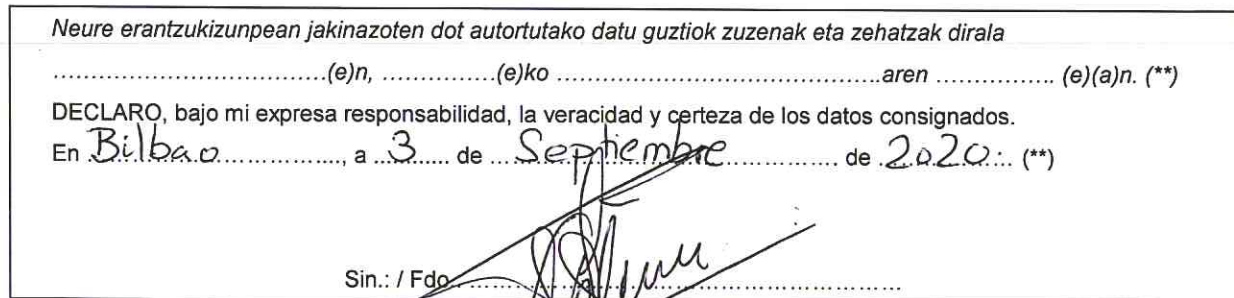 Neure erantzukizunpean jakinazoten dot autortutako datu guztiok zuzenak eta zehatzak dirala
..............................................(e)n, ...............(e)ko ...........................................aren ................ (e)(a)n. (**)
DECLARO, bajo mi expresa responsabilidad, la veracidad y certeza de los datos consignados.
En Bilbao, a 3 de Septiembre de 2020. (**)
Sin.: / Fdo.